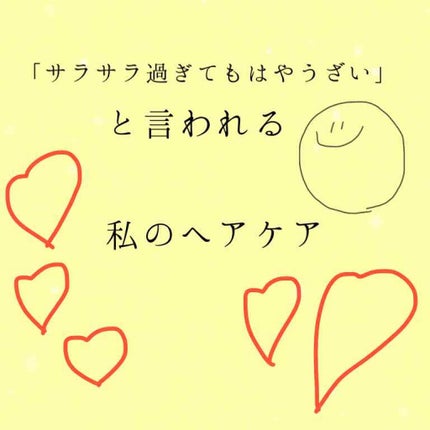 「サラサラ過ぎてもはやうざい」
と言われる
私のヘアケア